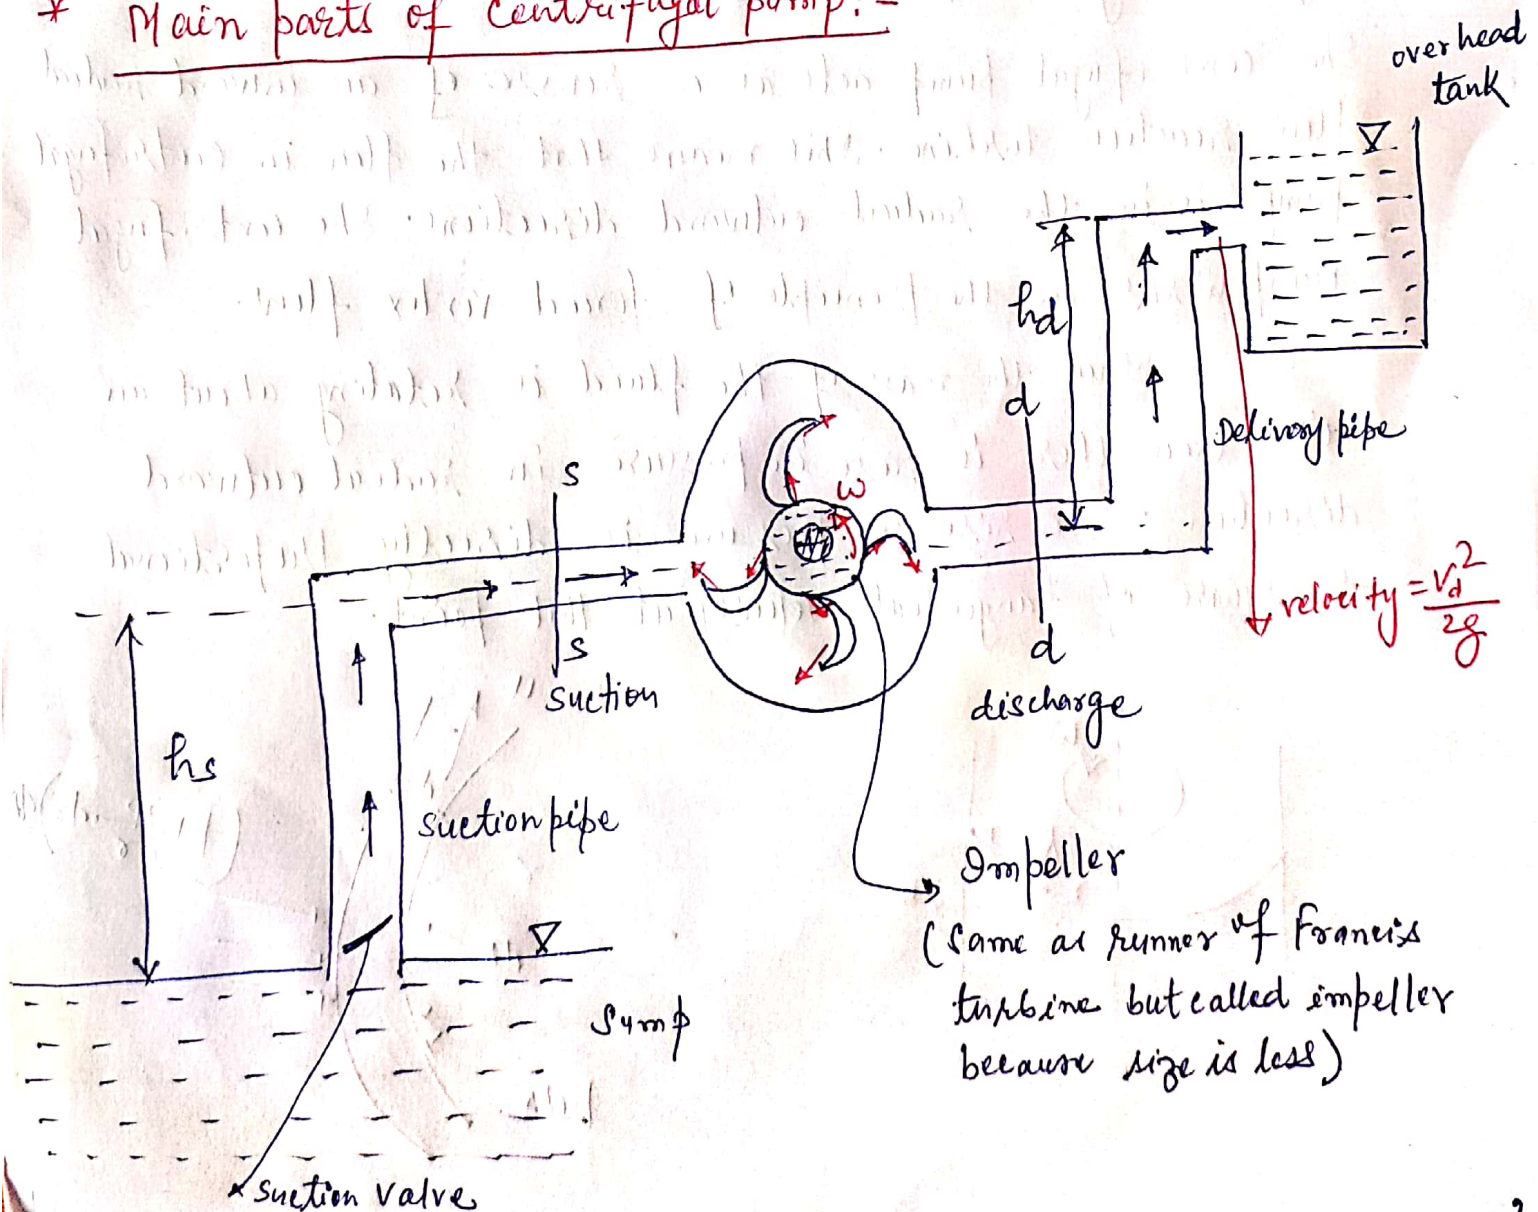 * Main parts of Centrifugal pump:-
overhead
tank
hd
d
Delivery pipe
S
ω
velocity = Vd²/2g
S
suction
d
discharge
hs
suction pipe
Impeller
(Same as runner of Francis
turbine but called impeller
because size is less)
Sump
suction valve